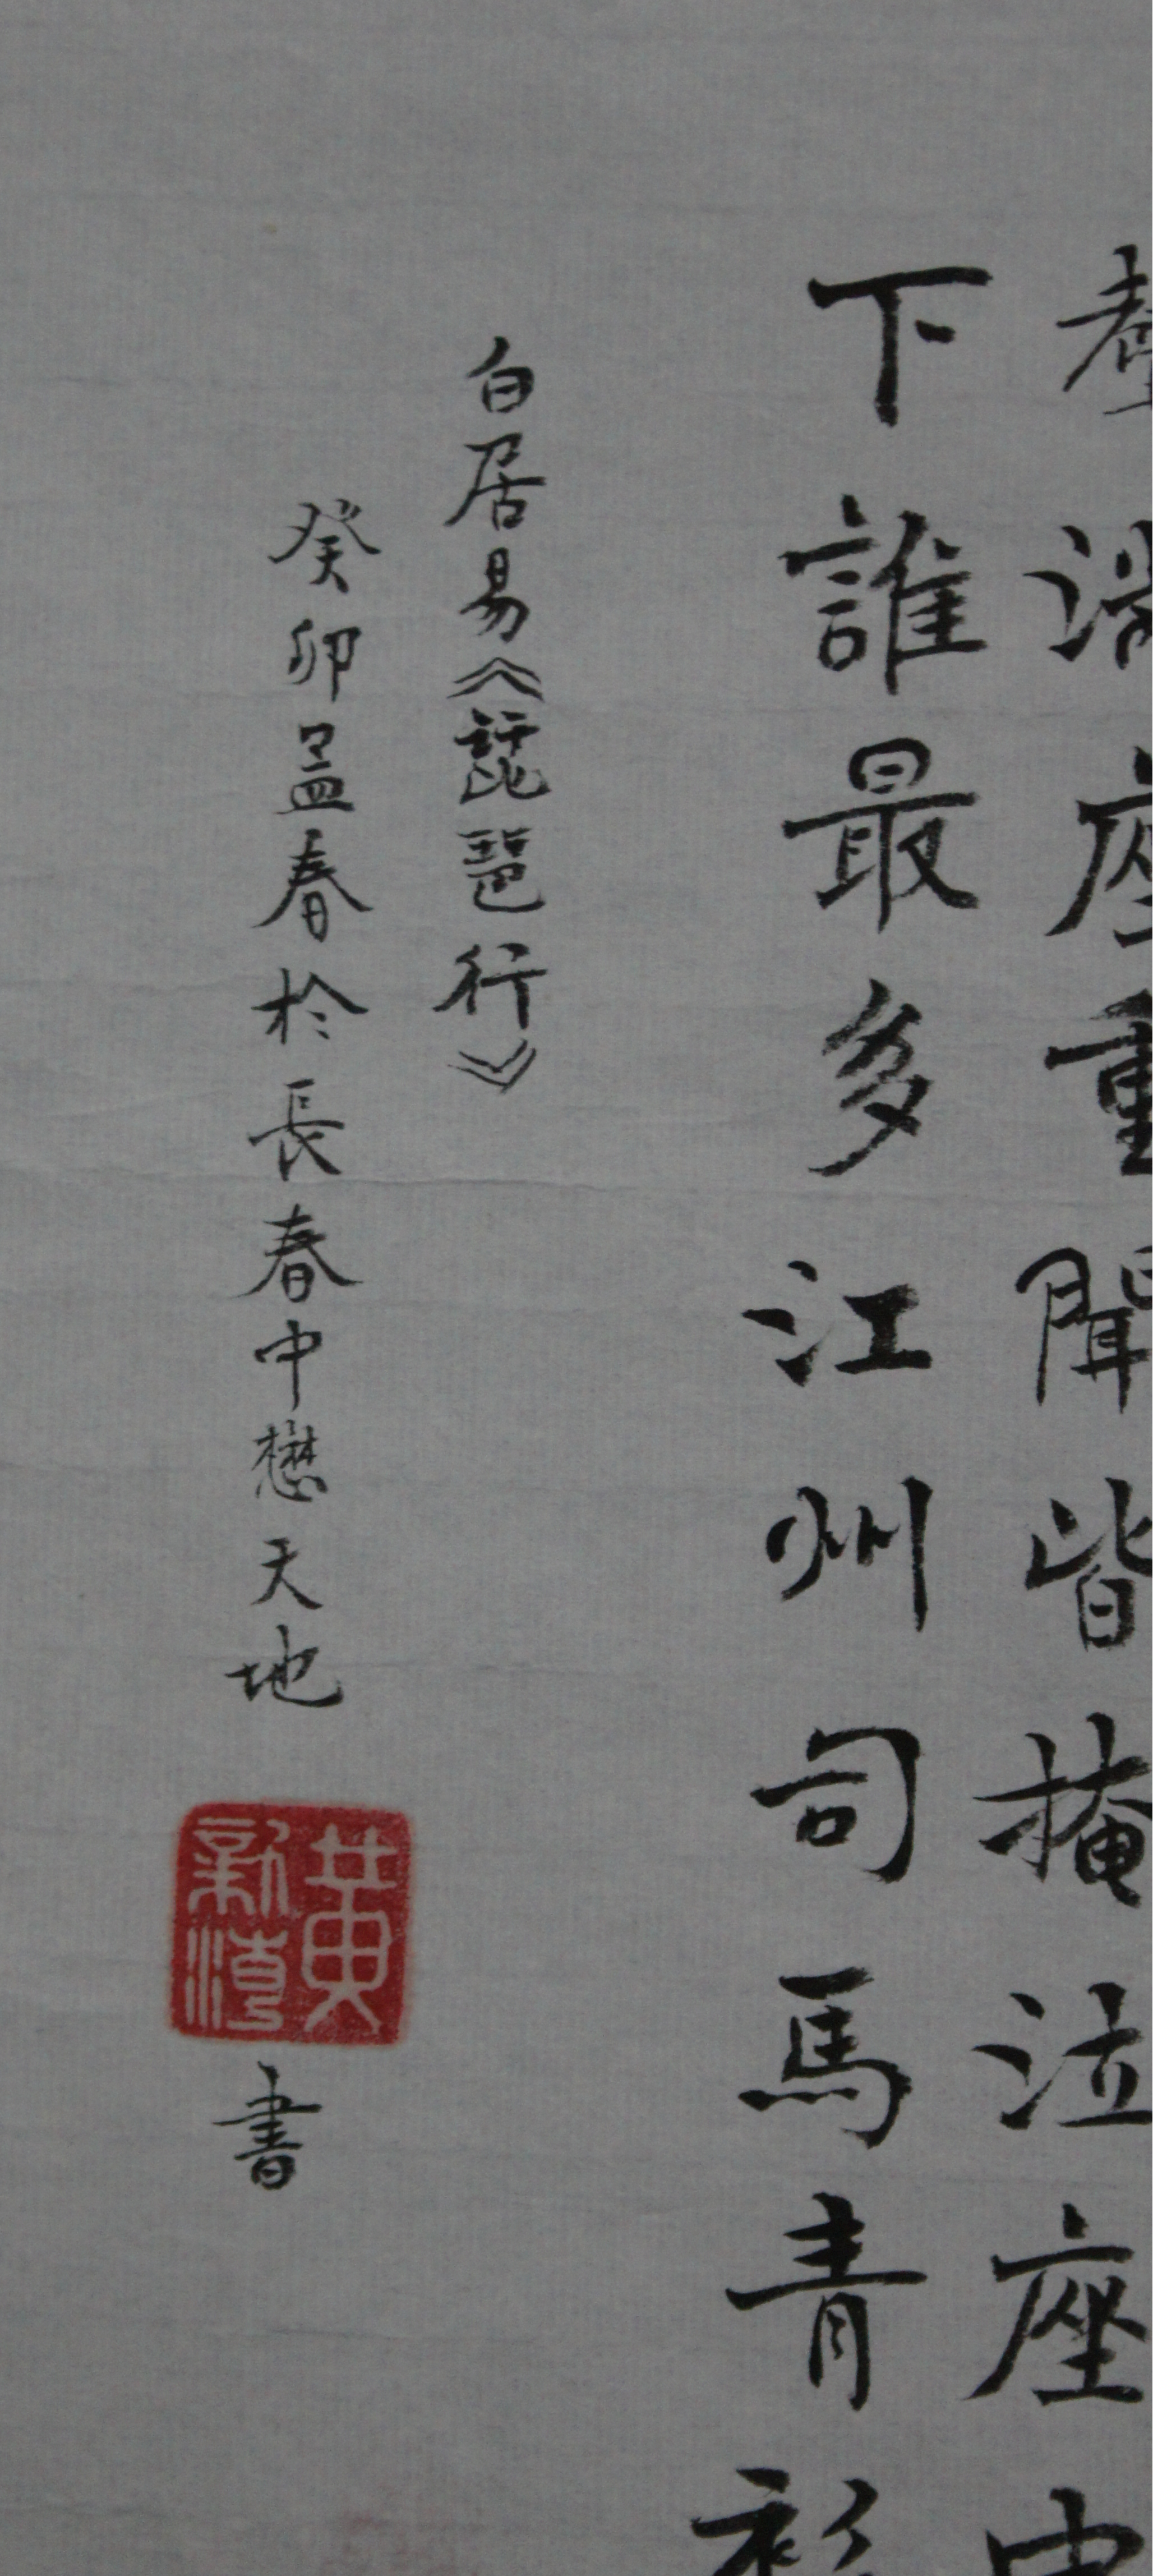 聲滿座重聞皆掩泣座中
下誰最多江州司馬青衫
白居易《琵琶行》
癸卯孟春於長春中懋天地
黃新濱
書